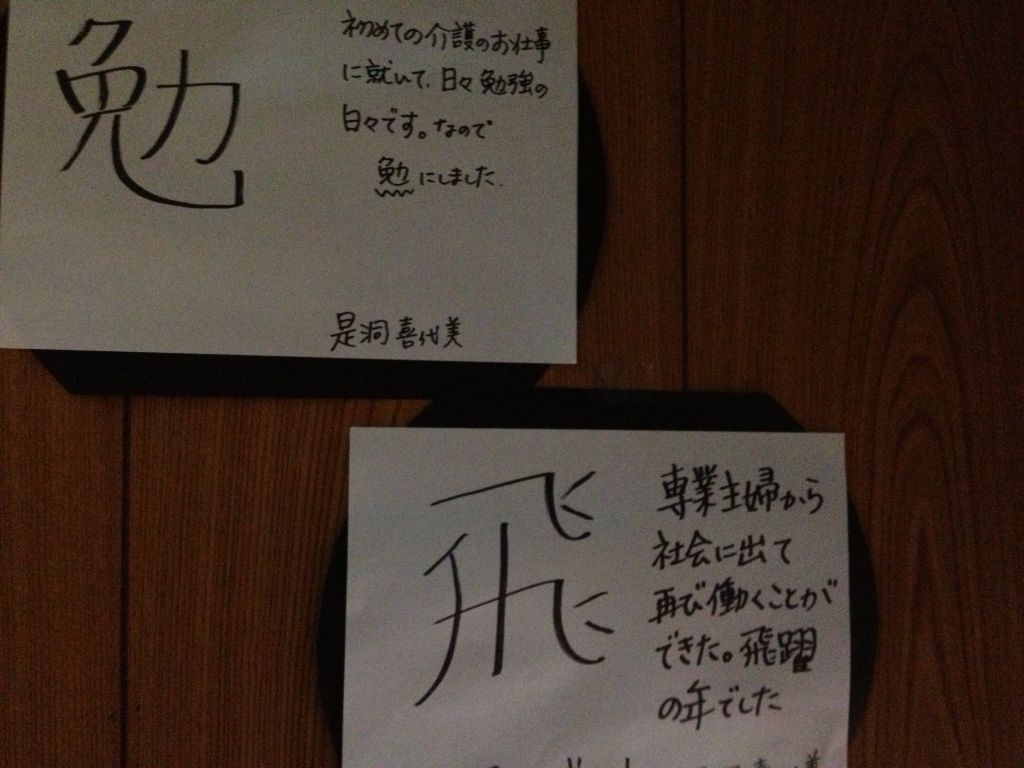 勉
初めての介護のお仕事
に就いて、日々勉強の
日々です。なので
勉にしました.
是洞喜代美
飛
専業主婦から
社会に出て
再び働くことが
できた。飛躍
の年でした